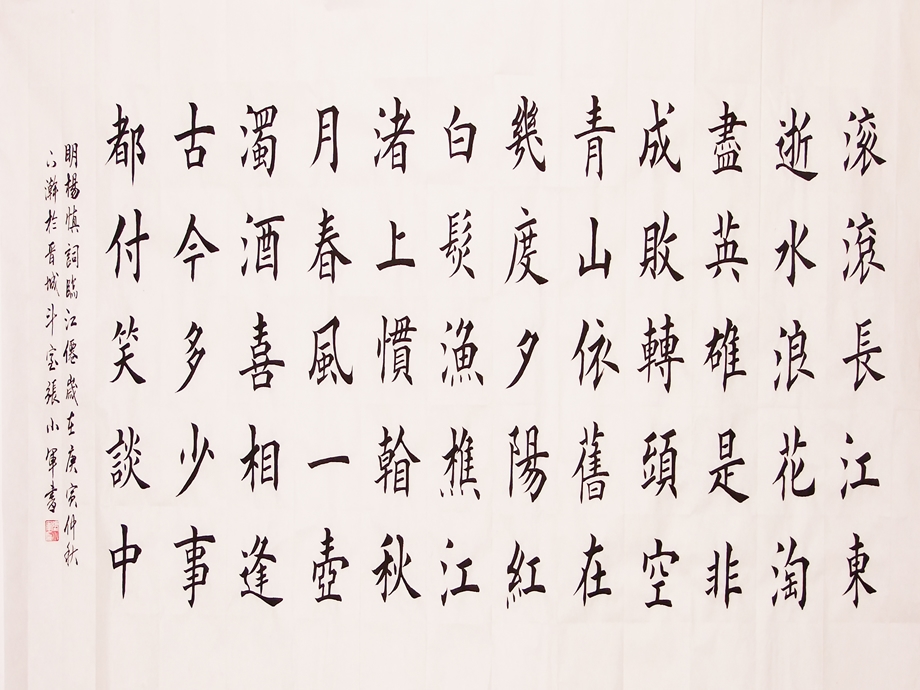 滚滾長江東
逝水浪花淘
盡英雄是非
成敗轉頭空
青山依舊在
幾度夕陽紅
白髮漁樵江
渚上慣秋
月春風一壺
濁酒喜相逢
古今多少事
都付笑談中
明楊慎詞臨江僊歲在庚寅仲秋
瀚於晉城斗室張小軍書